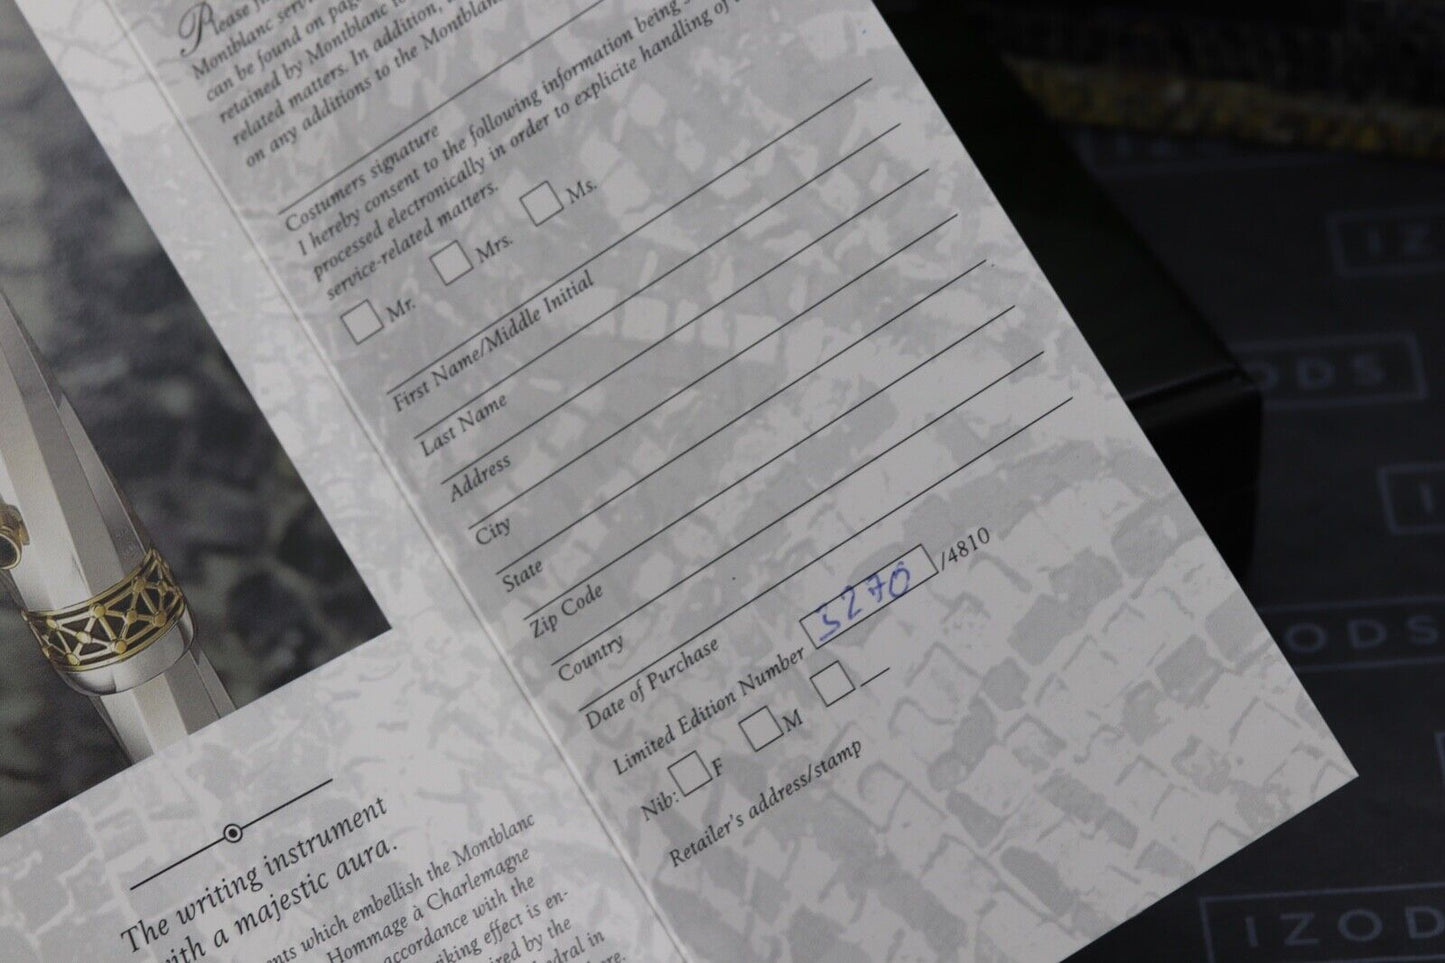 Please
Montblanc
can be found on
retained by Montblanc
related matters. In addition,
on any additions to the Montblanc
Costumers signature
I hereby consent to the following information being
processed electronically in order to explicite handling of
service-related matters.
Mr. Mrs. Ms.
First Name/Middle Initial
Last Name
Address
City
State
Zip Code
Country
Date of Purchase
Limited Edition Number 3270 /4810
Nib: F M
Retailer's address/stamp
The writing instrument
with a majestic aura.
which embellish the Montblanc
Hommage à Charlemagne
accordance with the
effect is en-
by the
in
IZ
ODS
I
IZODS
IZOD